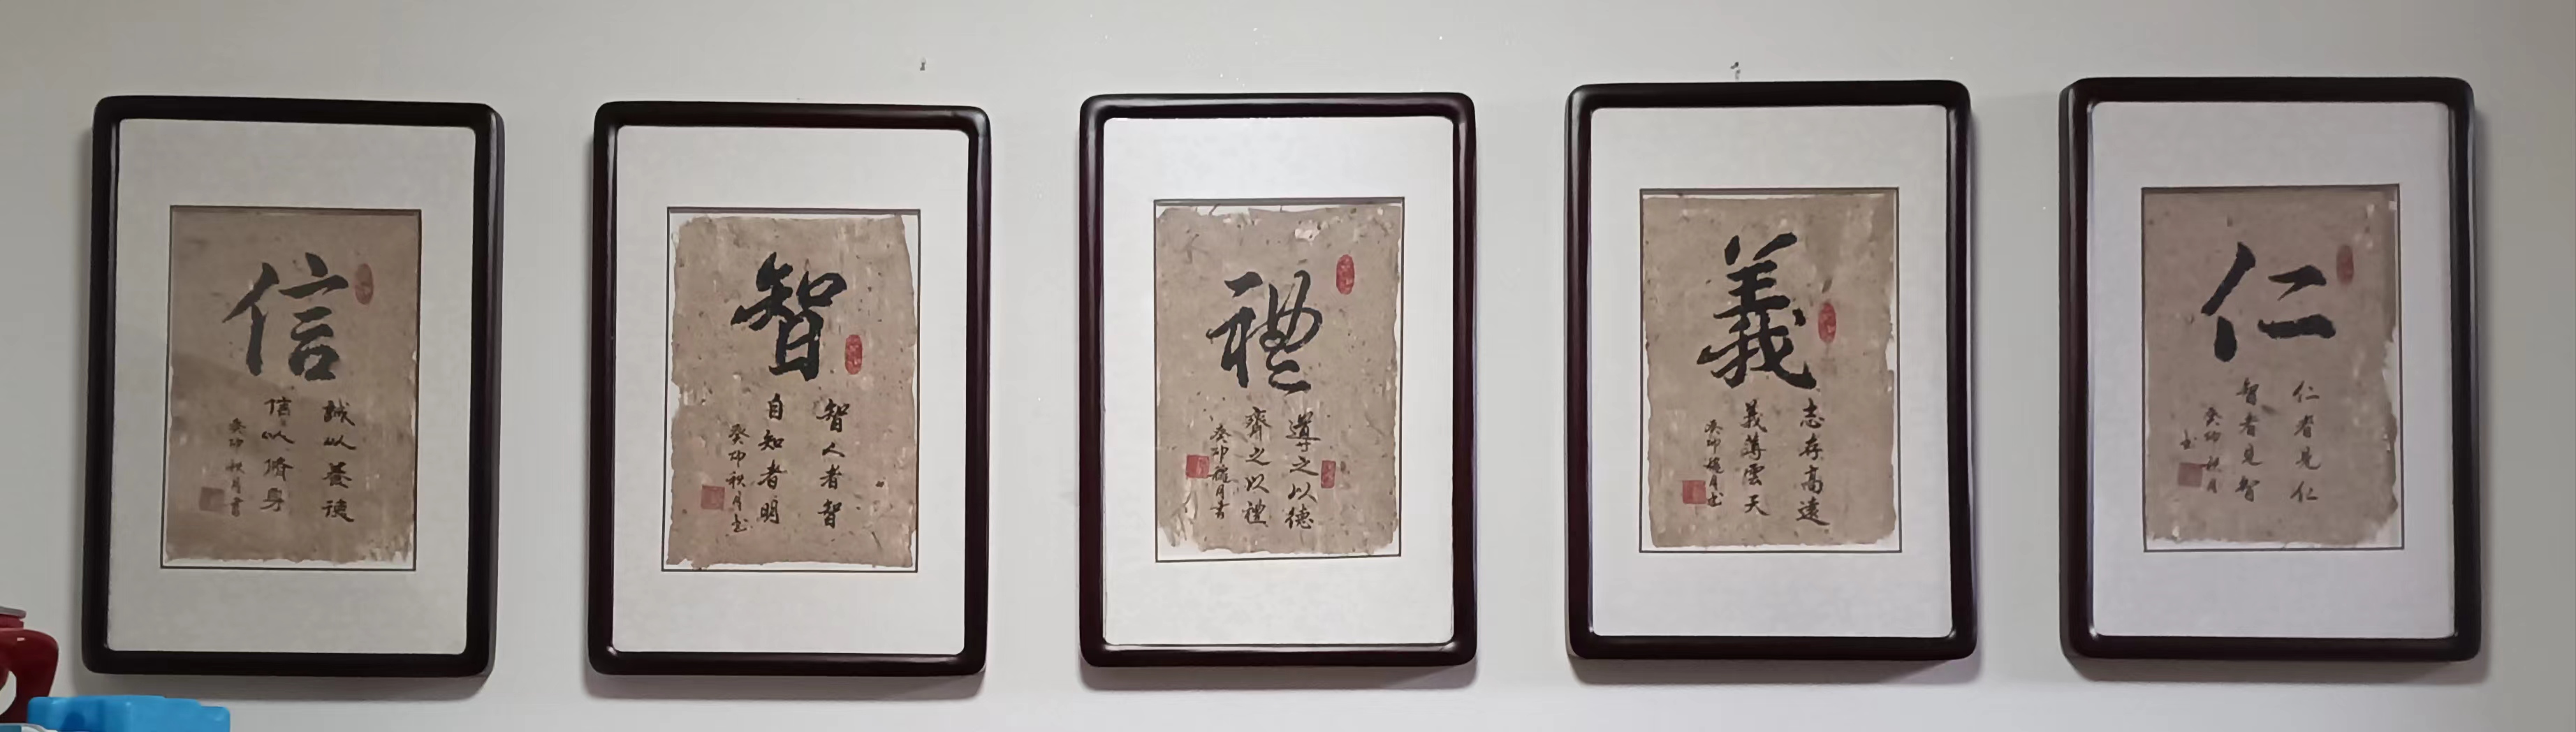 仁
仁者見仁
智者見智
癸卯秋月
書
義
志存高遠
義薄雲天
癸卯穐月書
禮
道之以德
齊之以禮
癸卯穐月書
智
智人者智
自知者明
癸卯秋月書
信
誠以養德
信以脩身
癸卯秋月書